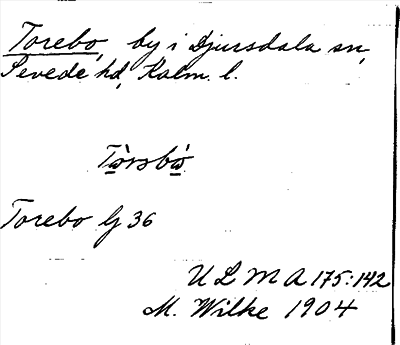 Torebo, by i Djursdala sn,
Sevede hd, Kalm. l.
Tòrsbò
Torebo G 36
U L M A 175:142
M. Wilke 1904